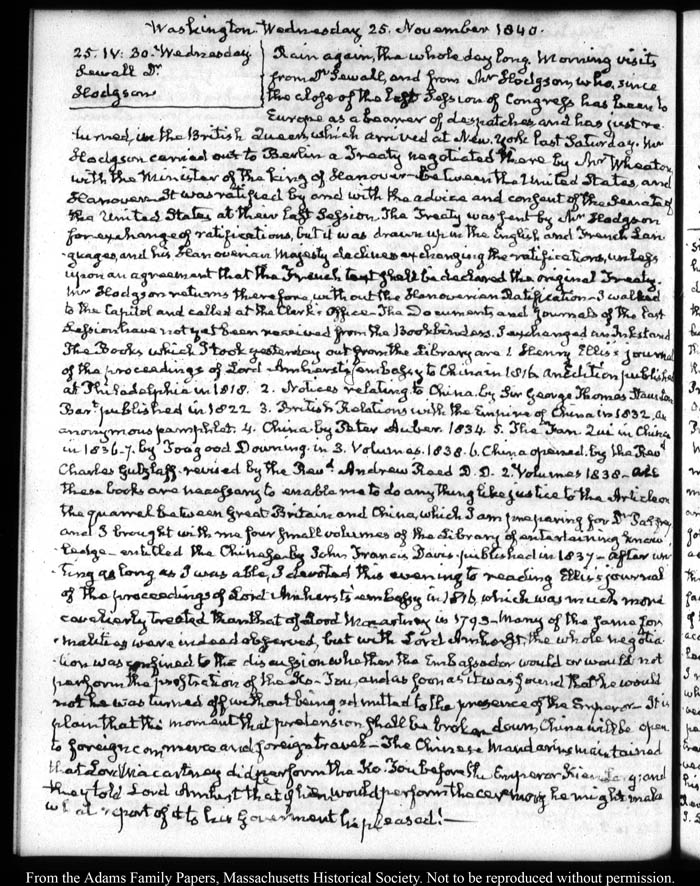 Washington Wednesday 25. November 1840.
25. IV: 30. Wednesday
Sewall Dr
Hodgson
Rain again, the whole day long. Morning visits
from Dr Sewall, and from Mr Hodgson, who, since
the close of the last Session of Congress has been to
Europe as a bearer of despatches and has just re-
turned, in the British Queen, which arrived at New-York last Saturday. Mr
Hodgson carried out to Berlin a Treaty negotiated there by Mr Wheaton
with the Minister of the King of Hanover between the United States, and
Hanover. It was ratified by and with the advice and consent of the Senate of
the United States at their last Session. The Treaty was sent by Mr Hodgson
for exchange of ratifications, but it was drawn up in the English and French Lan-
guages, and his Hanoverian Majesty declines exchanging the ratifications, unless
upon an agreement that the French text shall be declared the original Treaty.
Mr Hodgson returns therefore, without the Hanoverian Ratification - I walked
to the Capitol and called at the Clerk's Office - The Documents and Journals of the last
Session have not yet been received from the Bookbinders. I exchanged an Inkstand
The Books which I took yesterday out from the Library are 1. Henry Ellis's journal
of the proceedings of Lord Amherst's embassy to China in 1816. An Edition published
at Philadelphia in 1818. 2. Notices relating to China by Sir George Thomas Staunton
Bart published in 1822 3. British Relations with the Empire of China in 1832, an
anonymous pamphlet. 4. China by Peter Auber. 1834 5. The Fan-Qui in China
in 1836-7. by Toogood Downing. in 3. Volumes. 1838. 6. China opened. by the Revd
Charles Gutzlaff. revised by the Revd Andrew Reed D.D. 2. Volumes 1838 - All
these books are necessary to enable me to do any thing like justice to the Article on
the quarrel between Great-Britain and China, which I am preparing for Dr Palfrey,
and I brought with me four small volumes of the Library of entertaining know-
ledge - entitled the Chinese by John Francis Davis. published in 1837 - After wri-
ting as long as I was able, I devoted this evening to reading Ellis's journal
of the proceedings of Lord Amherst's embassy in 1816, which was much more
cavalierly treated than that of Lord Macartney in 1793 - Many of the same for-
malities were indeed observed, but with Lord Amherst, the whole negotia-
tion was confined to the discussion whether the Embassador would or would not
perform the prostration of the Ko-Tou, and as soon as it was found that he would
not he was turned off without being admitted to the presence of the Emperor - It is
plain that the moment that pretension shall be broken down, China will be open
to foreign commerce and foreign travel - The Chinese Mandarins maintained
that Lord Macartney did perform the Ko-Tou before the Emperor and
they told Lord Amherst that if he would perform the ceremony he might make
what report of it to his Government he pleased! -
From the Adams Family Papers, Massachusetts Historical Society. Not to be reproduced without permission.